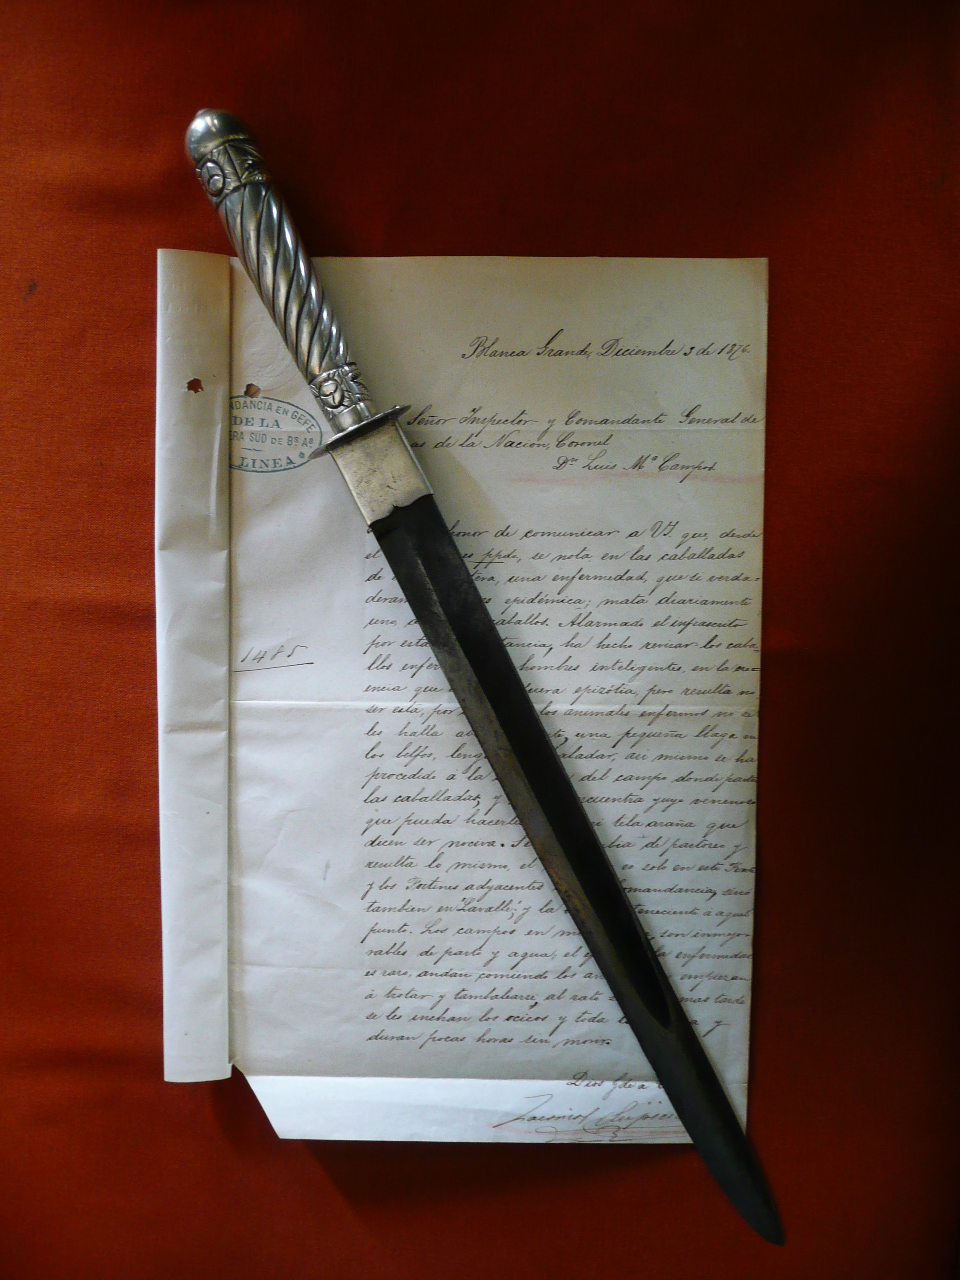 Blanca Grande, Diciembre 3 de 1876.
Señor Inspector y Comandante General de
as de la Nacion, Coronel
Dn Luis Ma Campos
NDANCIA EN GEFE
DE LA
ERA SUD DE Bs As
LINEA
honor de comunicar a VS. que, desde
el es ppdo, se nota en las caballadas
de tera, una enfermedad, que és verda=
deram epidémica; mata diariamente
uno, caballos. Alarmado el infrascrito
por esta tancia, ha hecho revisar los caba=
1485
llos enfer hombres inteligentes, en la cre=
encia que fuera epizótia, pero resulta no
ser esta, por los animales enfermos no se
les halla una pequeña llaga en
los belfos, leng paladar, asi mismo se ha
procedido á la del campo donde pasta
las caballadas, y cuentra yuyo venenoso
que pueda hacerles ni tela araña que
dicen ser nociva. Se bia de pastores y
resulta lo mismo, el es solo en este
y los Fortines adyacentes omandancia, sinó
tambien en "Lavalle", y la teneciente á aquel
punto. Los campos en son inmejo=
rables de pasto y agua; el la enfermedad
es raro, andan comiendo los an empiezan
á trotar y tambalearse, al rato mas tarde
se les inchan los ocicos y toda y
duran pocas horas sin morir.
Dios Gde a